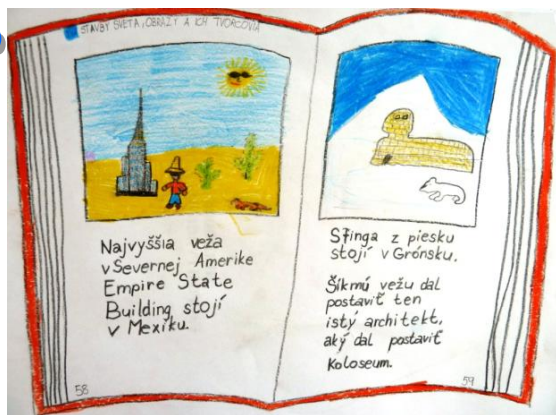 STAVBY SVETA, OBRAZY A ICH TVORCOVIA
Najvyššia veža
v Severnej Amerike
Empire State
Building stojí
v Mexiku.
58
Sfinga z piesku
stojí v Grónsku.
Šikmú vežu dal
postaviť ten
istý architekt,
aký dal postaviť
Koloseum.
59